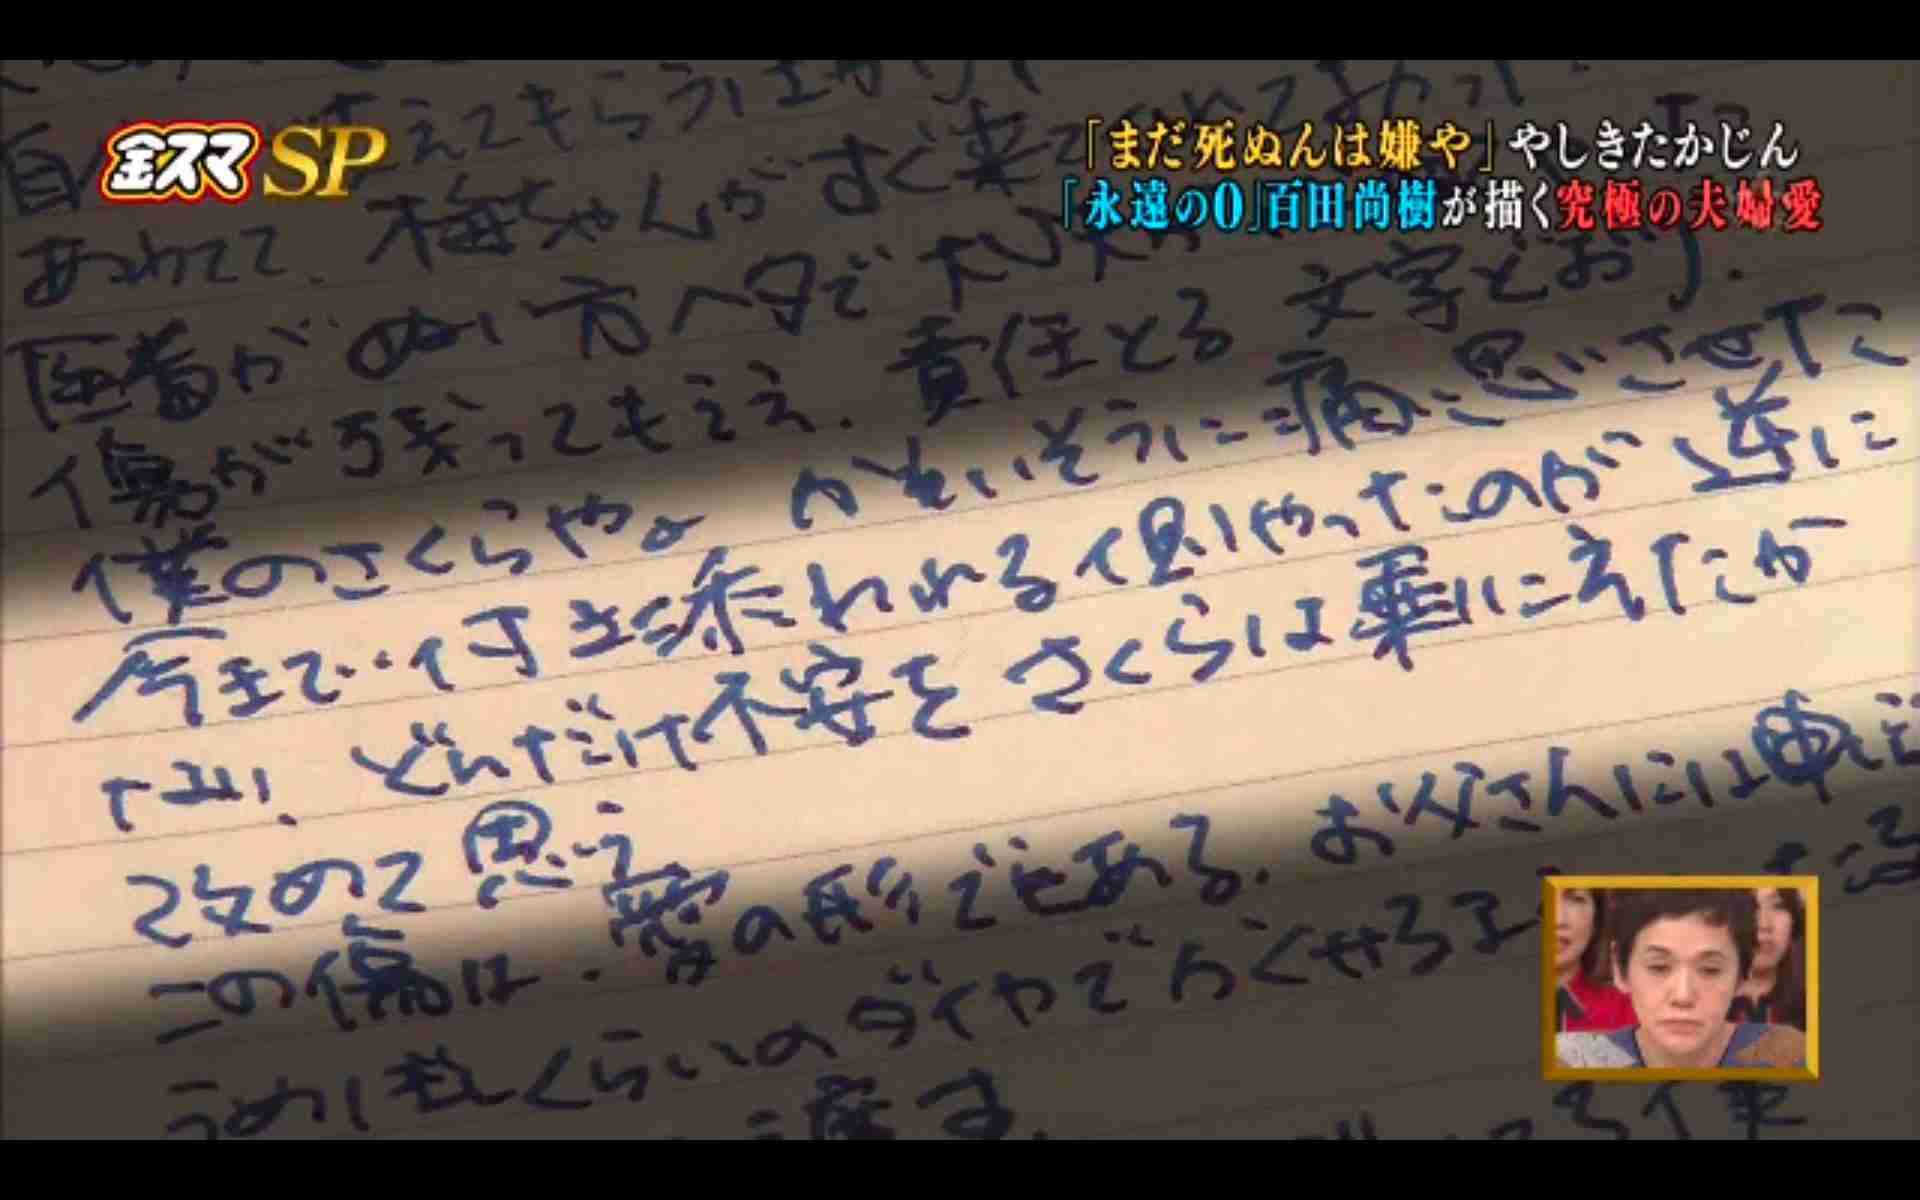 金スマSP
「まだ死ぬんは嫌や」やしきたかじん
「永遠の0」百田尚樹が描く究極の夫婦愛
えてもらう
あわてて、梅ちゃんがすぐ来て
医者がぬい方ヘタで
傷が残ってもええ、責任とる 文字どおり、
僕のさくらやよ かわいそうに痛い思いさせた
今まで付き添われる側やったのが 逆に
なり、どんだけ不安をさくらは乗りこえたか
改めて思う
この傷は、愛の形でもある、お父さんには申し
うめつくしくらいのダイヤでかくせる